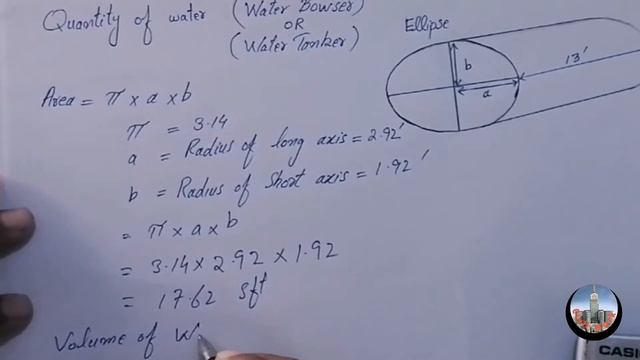 Quantity of water (Water Bowser)
OR
(Water Tonker)
Ellipse
b
a
13'
Area = π × a × b
π = 3.14
a = Radius of long axis = 2.92'
b = Radius of short axis = 1.92'
= π × a × b
= 3.14 × 2.92 × 1.92
= 17.62 sft
Volume of W
CASIO